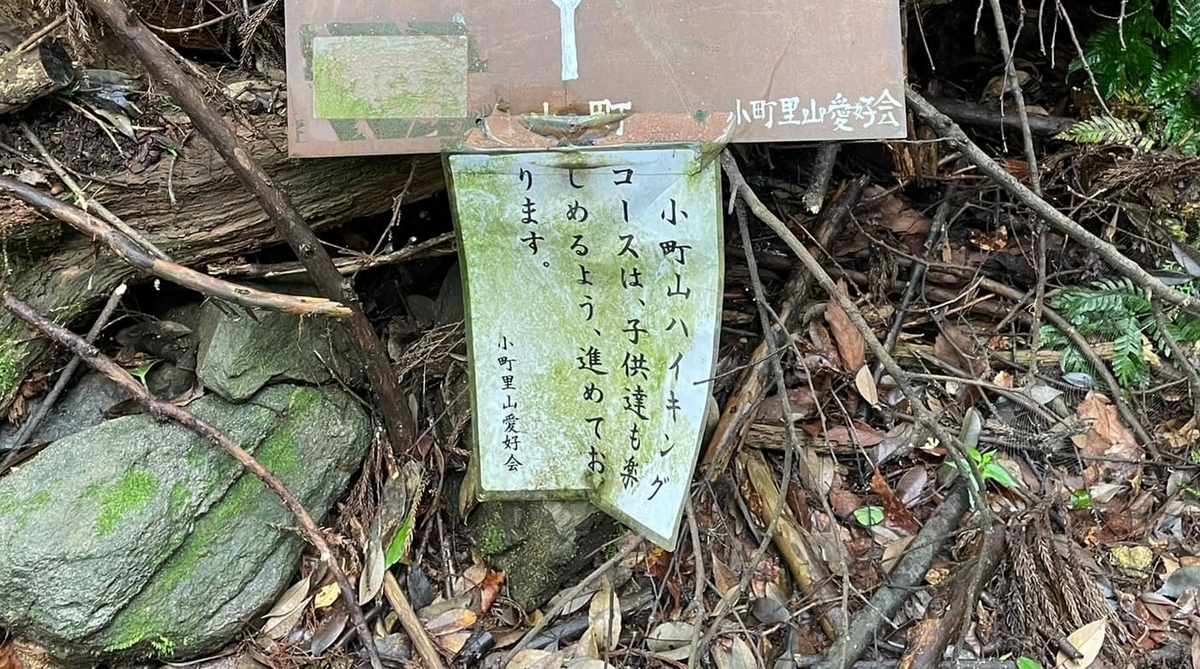 小町
小町里山愛好会
小町山ハイキング
コースは、子供達も楽
しめるよう、進めてお
ります。
小町里山愛好会